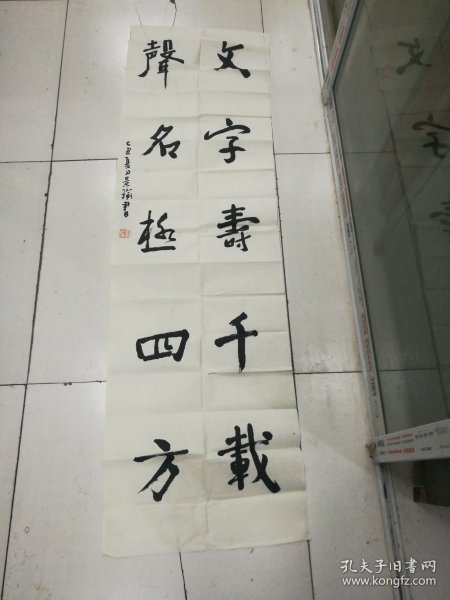 文字壽千載
聲名極四方
孔夫子旧书网
www.kongfz.com